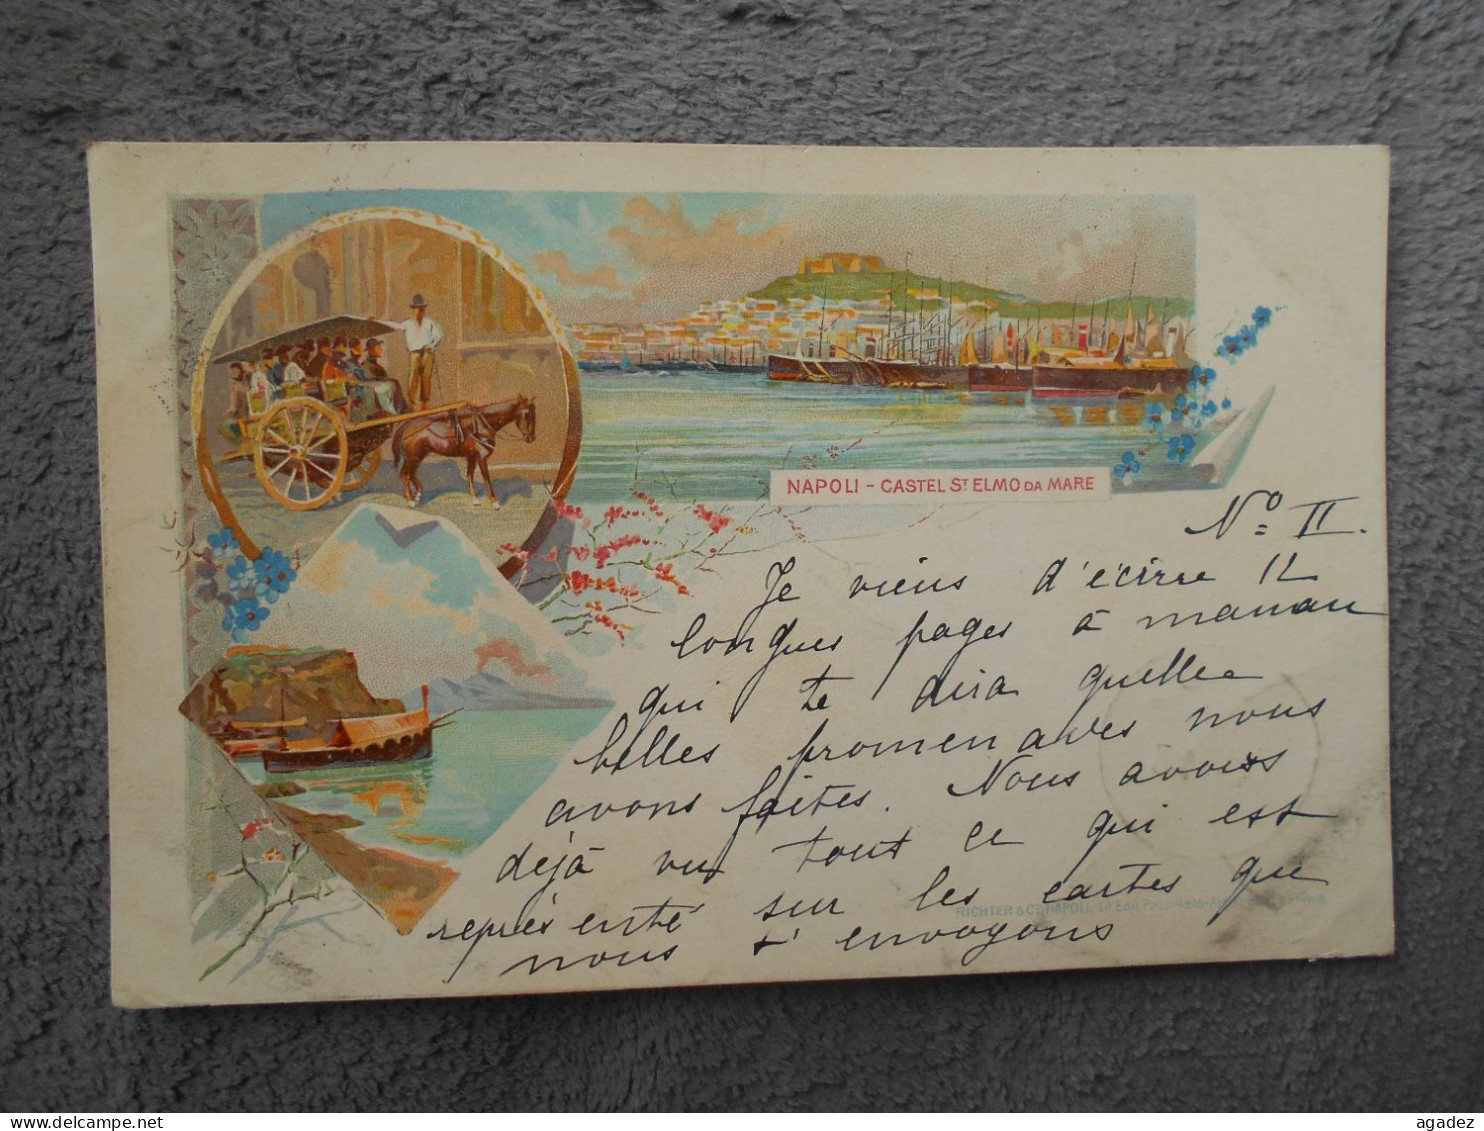 NAPOLI - CASTEL ST ELMO DA MARE
No II.
Je viens d'écirre 12
longues pages à manan
qui te dira quelles
belles promenades nous
avons faites. Nous avons
déjà vu tout ce qui est
représenté sur les cartes que
RICHTER & Co NAPOLI,
nous t'envoyons
www.delcampe.net
agadez